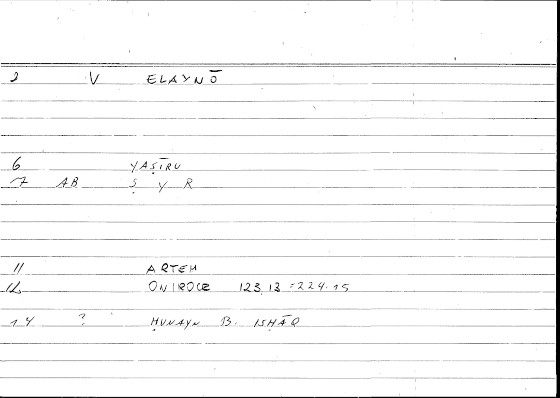 2 V ELAYNŌ
6 YAṢĪRU
7 AB Ṣ Y R
11 ARTEM
12 ONIROCR 123,13 = 224.15
14 ? ḤUNAYN B. ISḤĀQ